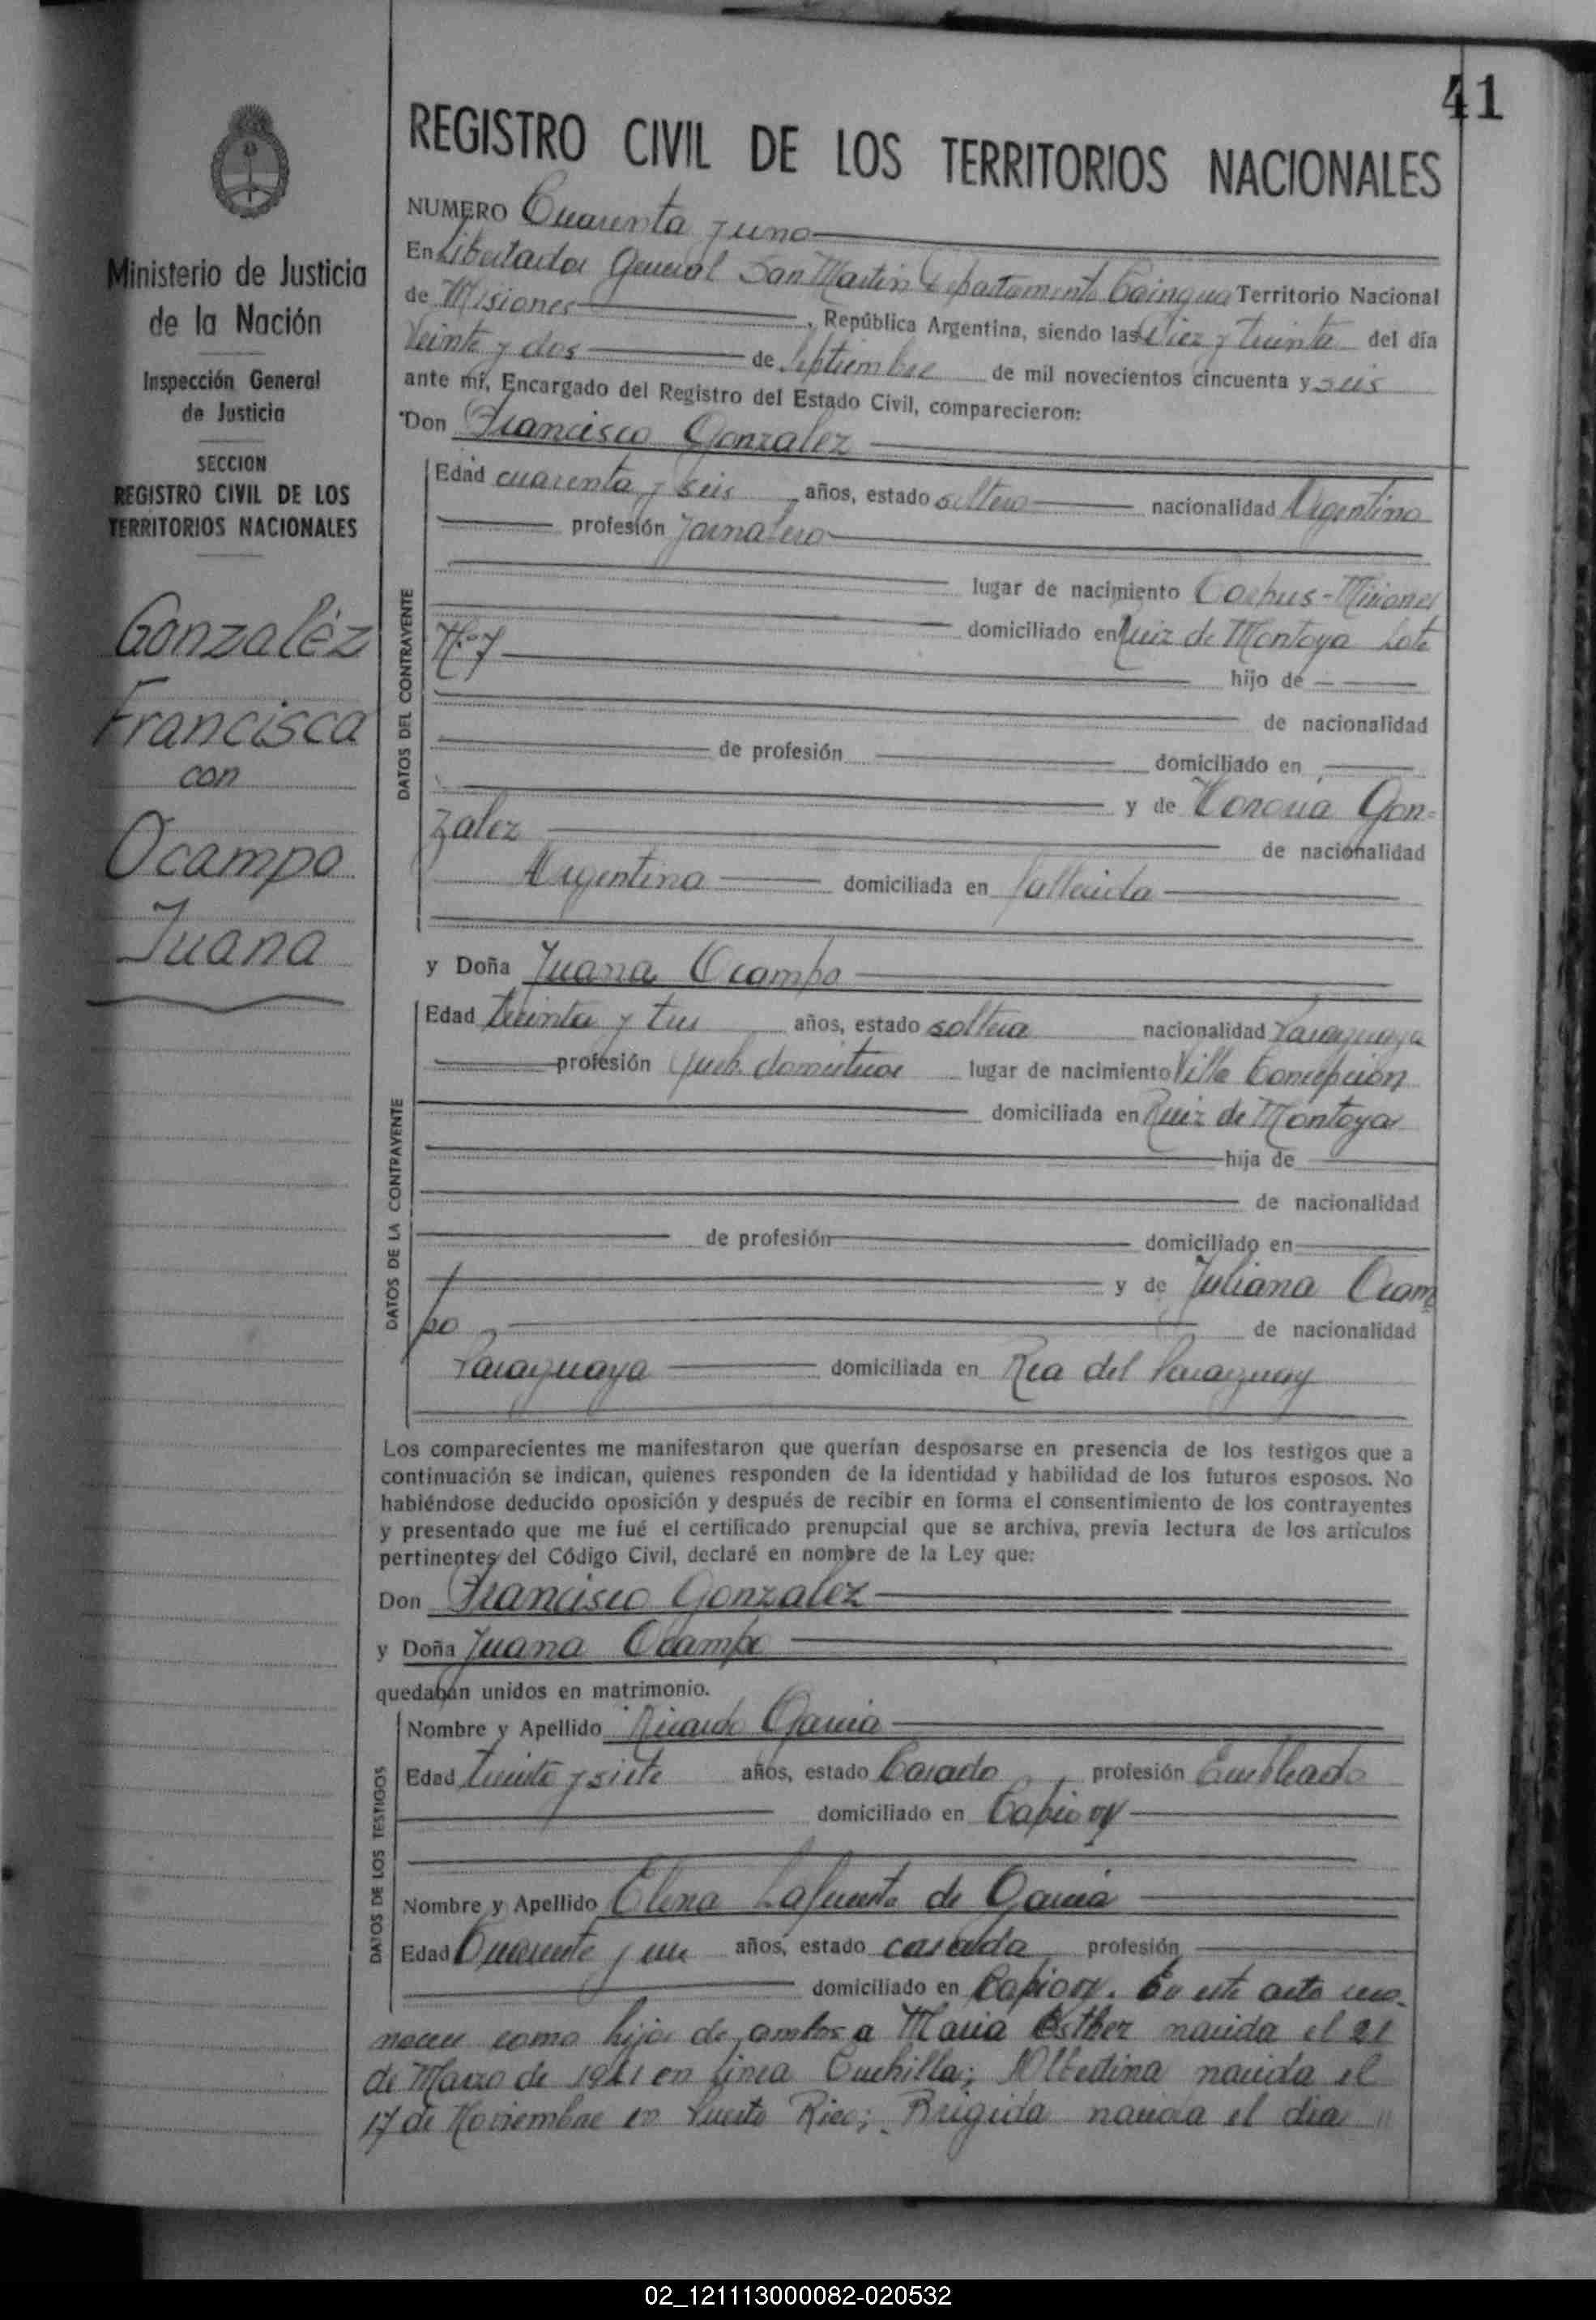 41
REGISTRO CIVIL DE LOS TERRITORIOS NACIONALES
Ministerio de Justicia
de la Nación
Inspección General
de Justicia
SECCION
REGISTRO CIVIL DE LOS
TERRITORIOS NACIONALES
Gonzaléz
Francisca
con
Ocampo
Juana
NUMERO Cuarenta y uno
En Libertador General San Martin Departamento Cainguas Territorio Nacional
de Misiones, República Argentina, siendo las diez y treinta del día
Veinte y dos de Septiembre de mil novecientos cincuenta y seis
ante mí, Encargado del Registro del Estado Civil, comparecieron:
Don Francisco Gonzalez
DATOS DEL CONTRAYENTE
Edad cuarenta y seis años, estado soltero nacionalidad Argentino
profesión Jornalero
lugar de nacimiento Corpus - Misiones
domiciliado en Ruiz de Montoya Lote
Nº 7
hijo de
de nacionalidad
de profesión domiciliado en
y de Honoria Gon-
zalez de nacionalidad
Argentina domiciliada en fallecida
y Doña Juana Ocampo
DATOS DE LA CONTRAYENTE
Edad treinta y tres años, estado soltera nacionalidad Paraguaya
profesión Queh. domesticos lugar de nacimiento Villa Concepción
domiciliada en Ruiz de Montoya
hija de
de nacionalidad
de profesión domiciliado en
y de Juliana Ocam
po de nacionalidad
Paraguaya domiciliada en Rca del Paraguay
Los comparecientes me manifestaron que querían desposarse en presencia de los testigos que a
continuación se indican, quienes responden de la identidad y habilidad de los futuros esposos. No
habiéndose deducido oposición y después de recibir en forma el consentimiento de los contrayentes
y presentado que me fué el certificado prenupcial que se archiva, previa lectura de los artículos
pertinentes del Código Civil, declaré en nombre de la Ley que:
Don Francisco Gonzalez
y Doña Juana Ocampo
quedaban unidos en matrimonio.
DATOS DE LOS TESTIGOS
Nombre y Apellido Ricardo Garcia
Edad treinta y siete años, estado Casado profesión Empleado
domiciliado en Capiovy
Nombre y Apellido Elena Lafuente de Garcia
Edad Cuarenta y un años, estado casada profesión
domiciliado en Capiovy. En este acto reco-
nocen como hijos de ambos a Maria Esther nacida el 21
de Marzo de 1941 en Linea Cuchilla; Albertina nacida el
17 de Noviembre en Puerto Rico; Brigida nacida el dia
02_121113000082-020532